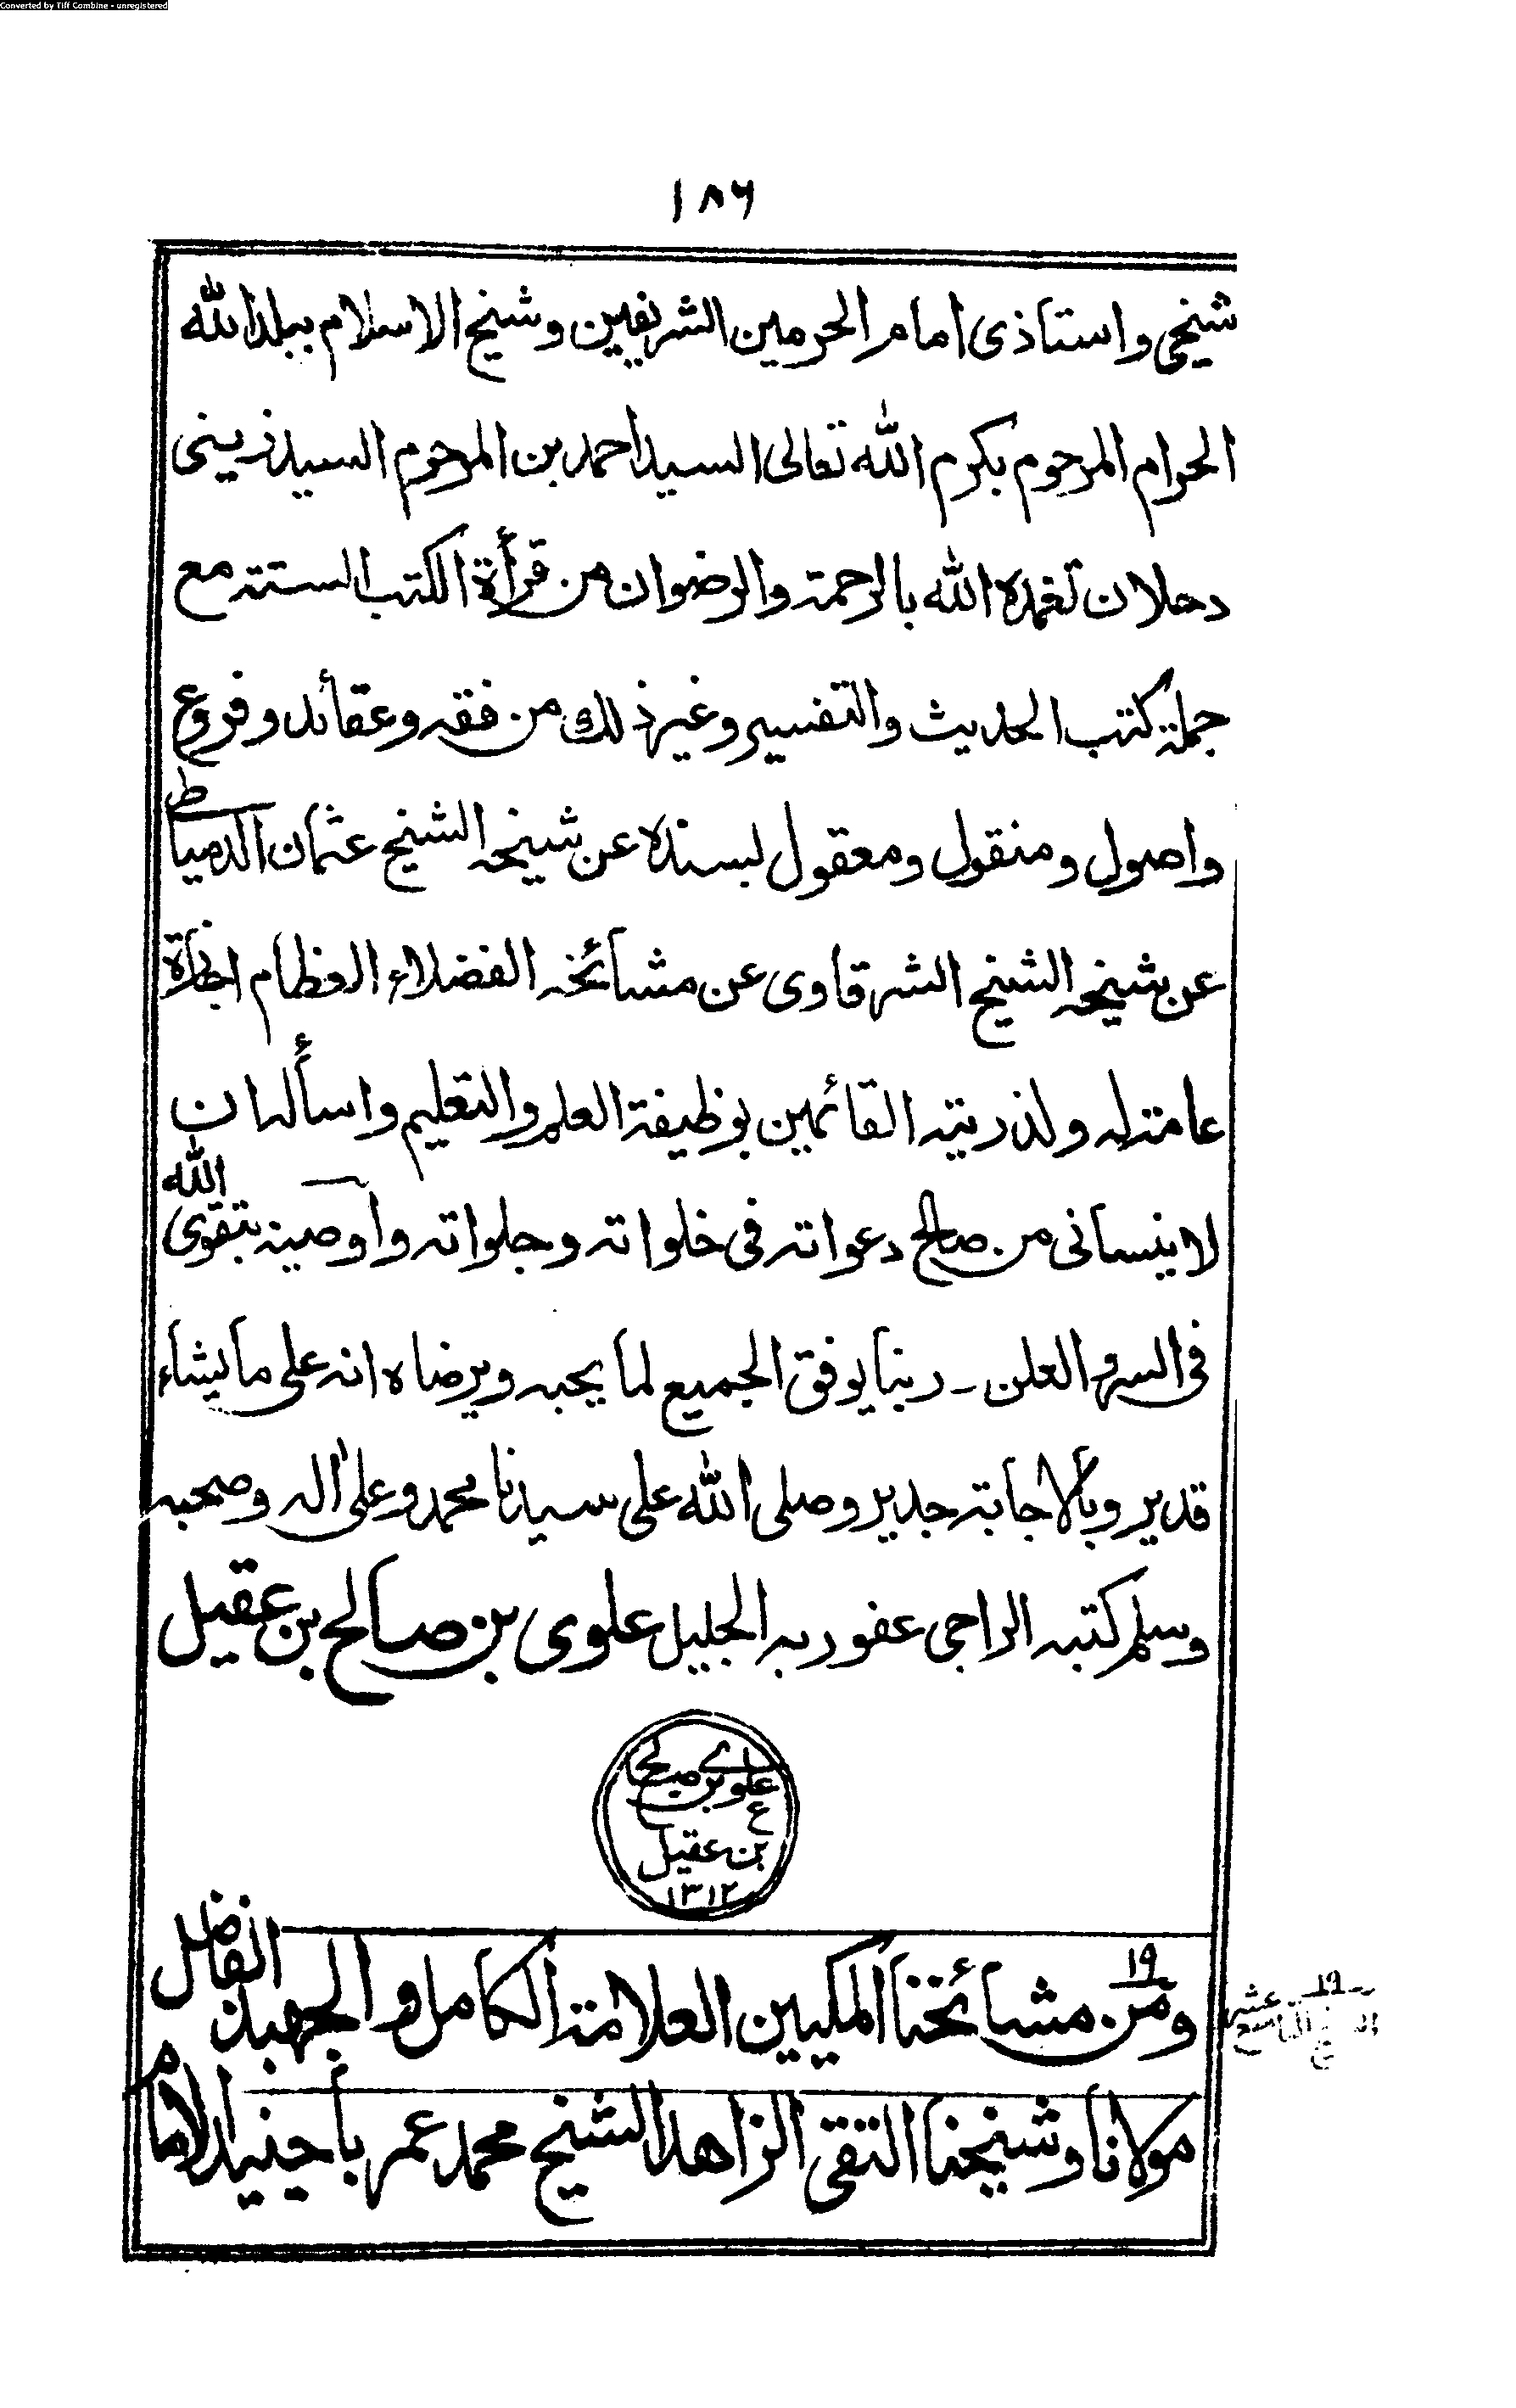 Converted by Tiff Combine - unregistered
١٨٦
شيخي واستاذى امام الحرمين الشريفين وشيخ الاسلام ببلد الله
الحرام المرحوم بكرم الله تعالى السيد احمد بن المرحوم السيد زينى
دحلان تغمده الله بالرحمة والرضوان من قرأة الكتب الستة مع
جملة كتب الحديث والتفسير وغير ذلك من فقه وعقائد وفروع
واصول ومنقول ومعقول بسنده عن شيخه الشيخ عثمان الدمياطى
عن شيخه الشيخ الشرقاوى عن مشائخه الفضلاء العظام اجازة
عامة له ولذريته القائمين بوظيفة العلم والتعليم واسأله ان
لا ينسانى من صالح دعواته فى خلواته وجلواته واوصيه بتقوى الله
فى السر والعلن ـ ربنا يوفق الجميع لما يحبه ويرضاه انه على ما يشاء
قدير وبالاجابة جدير وصلى الله على سيدنا محمد وعلى اله وصحبه
وسلم كتبه الراجى عفو ربه الجليل علوى بن صالح بن عقيل
علوي بن صالح
ع
بن عقيل
١٣١٢
١٩
ومن مشائخنا المكيين العلامة الكامل والجهبذ الفاضل
١٩
التاسع عشر
مولانا وشيخنا التقى الزاهد الشيخ محمد عمر باجنيد الامام